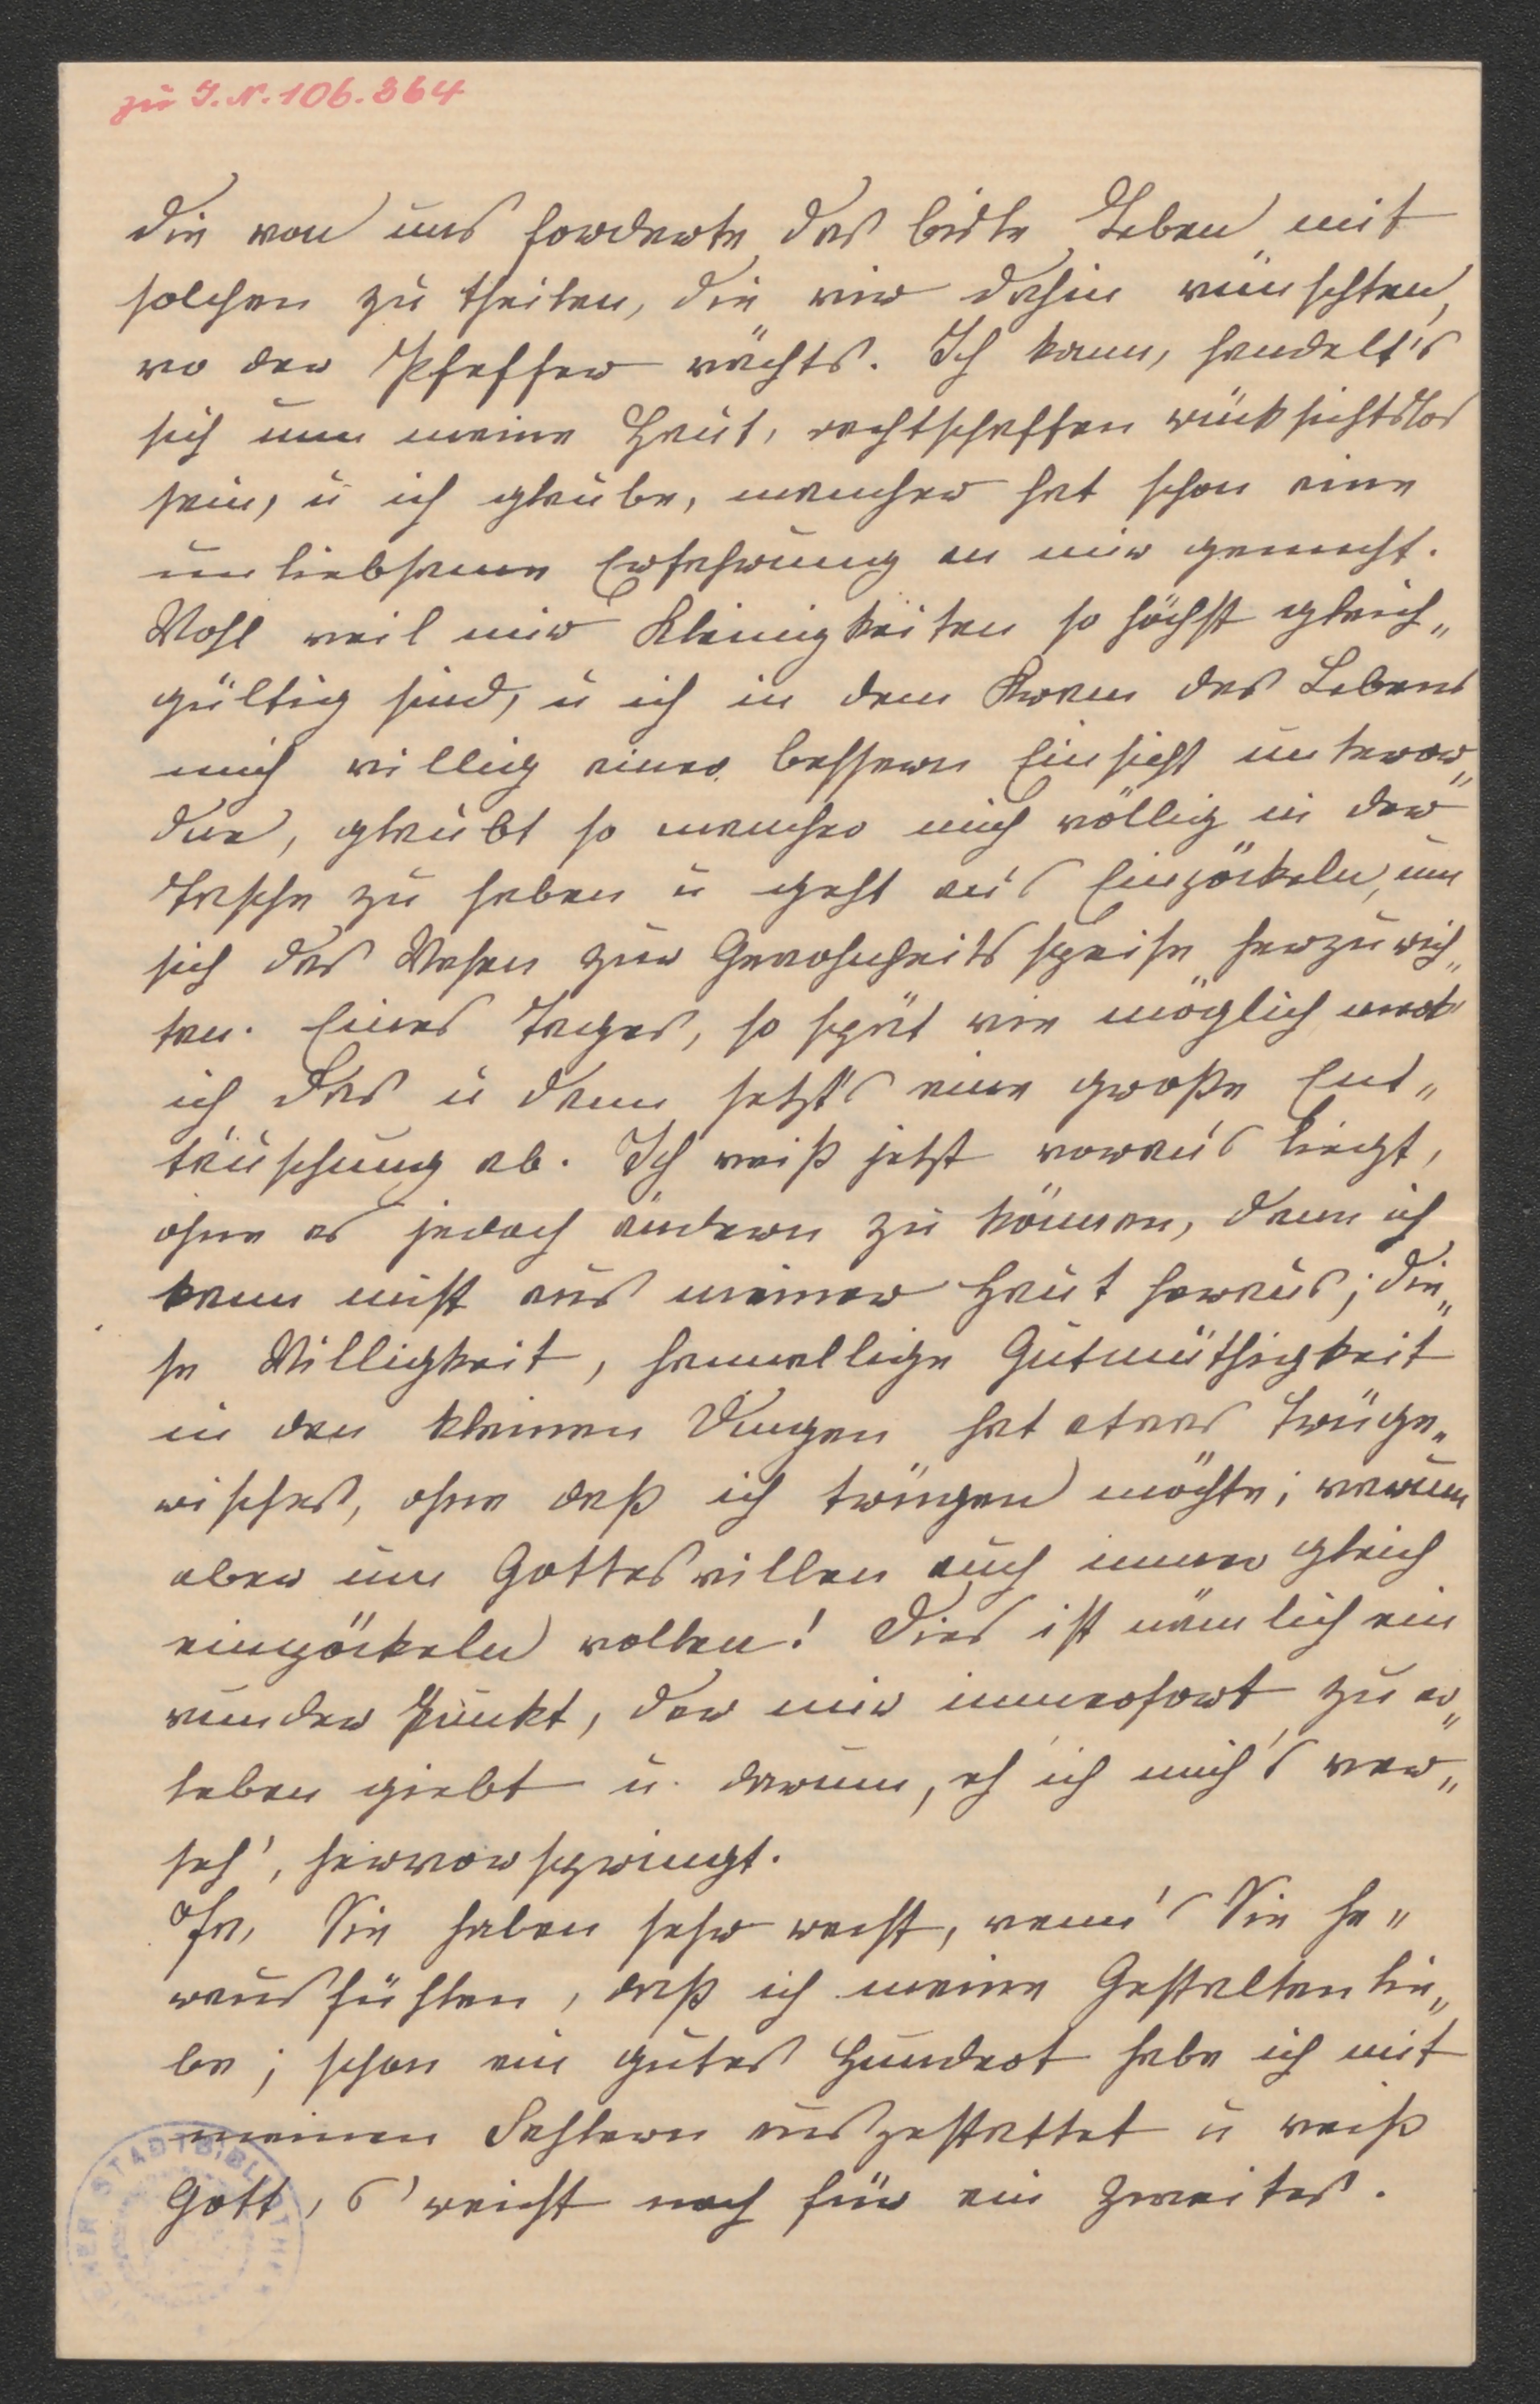 zu I.N. 106.364
die von uns forderte das bisle Leben mit
solchen zu theilen, die wir dahin wünschten,
wo der Pfeffer wächts. Ich kann, handelt's
sich um meine Haut, rechtschaffen rücksichtslos
sein, u ich glaube, mancher hat schon eine
unliebsame Erfahrung an mir gemacht.
Wohl weil mir Kleinigkeiten so höchst gleich„
gültig sind, u ich in dem Kram des Lebens
mich willig einer bessern Einsicht unteror„
dne, glaubt so mancher mich völlig in der
Tasche zu haben u geht aus Einpöckeln, um
sich das Wesen zur Gewohnheitsspeise herzurich„
ten. Eines Tages, so spät wie möglich
ich das u dann setzt's eine große Ent„
täuschung ab. Ich weiß jetzt woran's liegt,
ohne es jedoch ändern zu können, denn ich
kann nicht aus meiner Haut heraus; die„
se Willigkeit, hamellige Gutmüthigkeit
in den kleinen Dingen hat etwas trüge„
risches, ohne daß ich trügen möchte; warum
aber um Gotteswillen auch immer gleich
einpöckeln wollen! Dies ist nämlich ein
wunder Punkt, der mir immerfort zu er„
leben giebt u. darum, eh' ich mich's ver„
seh', hervorspringt.
Ja, Sie haben sehr recht, wenn's Sie he„
rausfühlen, daß ich meine Gestalten lie„
be; schon ein gutes Hundert habe ich mit
meinen Fehlern ausgestattet u weiß
Gott, s' reicht noch für ein zweites.
WIENER STADTBIBLIOTHEK